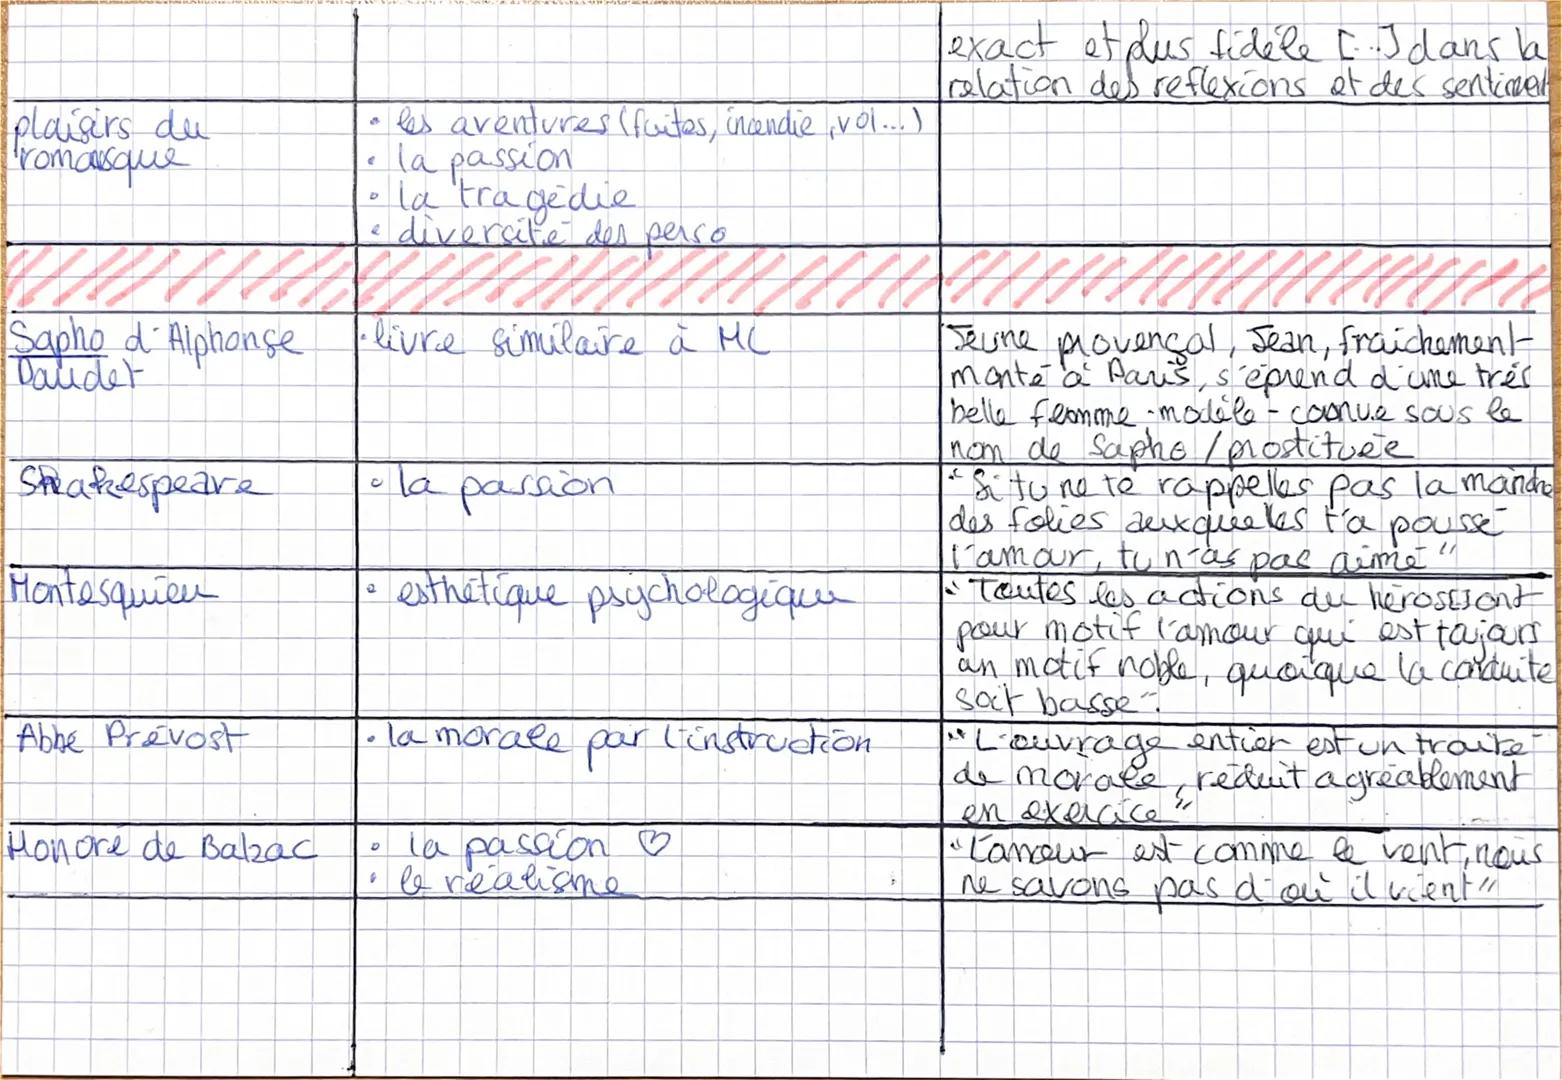 exact et plus fidèle [...] dans la
relation des reflexions et des sentiment
plaisirs du
romansque
• les aventures (fuites, incendie, vol...)
• la passion
• la tragédie
• diversité des perso
Sapho d'Alphonse
Daudet
• livre similaire à ML
Jeune provençal, Jean, fraichement
monté à Paris, s'éprend d'une très
belle femme - modèle - connue sous le
nom de Sapho / prostituée
Shakespeare
• la passion
"Si tu ne te rappelles pas la moindre
des folies auxquelles t'a poussé
l'amour, tu n'as pas aimé"
Montesquieu
• esthétique psychologique
"Toutes les actions du héros[]ont
pour motif l'amour qui est toujours
un motif noble, quoique la conduite
soit basse".
Abbe Prévost
• la morale par l'instruction
"L'ouvrage entier est un traité
de morale, réduit agréablement
en exercice"
Honoré de Balzac
• la passion ♡
• le réalisme
"L'amour est comme le vent, nous
ne savons pas d'où il vient"